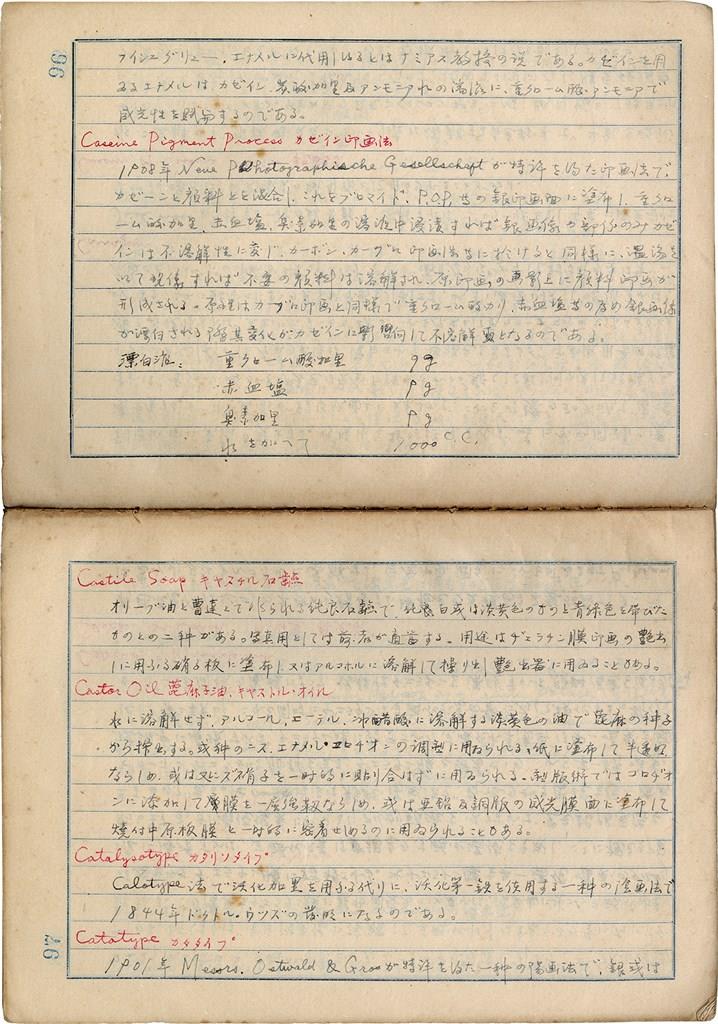 96
フイシュグリュー、エナメルに代用しうるとはナミアス教授の説である。カゼインを用
ふるエナメルはカゼイン、炭酸加里及アンモニアの溶液に、重クローム酸アンモニアで
感光性を賦与するのである。
Caseine Pigment Process カゼイン印画法
1908年 Neue Photographische Gesellschaft が特許を得た印画法で、
カゼーンと顔料とを混合し、これをブロマイド、P.O.P. 等の銀印画面に塗布し、重クロ
ーム酸加里、赤血塩、臭素加里の溶液中浸漬すれば銀画像の部分のみカゼ
インは不溶解性に変じ、カーボン、カーブロ印画法等に於けると同様に、温湯を
以て現像すれば不要の顔料は溶解され、原印画の画影上に顔料印画が
形成される。原理はカーブロ印画と同様で重クローム酸カリ、赤血塩等の為め銀画像
が漂白される際其変化がカゼインに影響して不溶解となるのである。
漂白液: 重クローム酸加里 9g
赤血塩 9g
臭素加里 9g
水を加へて 1000 C.C.
Castile Soap キャスチル石鹸
オリーブ油と曹達とで作られる純良石鹸で、純白或は淡黄色のものと青緑色を帯びた
ものとの二種がある。写真用としては前者が適当する。用途はゼラチン膜印画の艶出
しに用ふる硝子板に塗布し、又はアルコホルに溶解して 艶出器に用ゐることがある。
Castor Oil 蓖麻子油、キャストル・オイル
水に溶解せず、アルコール、エーテル、氷醋酸に溶解する淡黄色の油で蓖麻の種子
から搾出する。或種のニス、エナメル・コロヂオンの調製に用ゐられる、紙に塗布して半透明
ならしめ、或は 硝子を一時的に貼り合はすに用ゐられる。製版術ではコロヂオ
ンに添加して膜を一層強靱ならしめ、或は亜鉛及銅版の感光膜面に塗布して
焼付中原板膜と一時的に密着せしめるのに用ゐられることもある。
Catalysotype カタリソタイプ
Calotype 法で沃化加里を用ふる代りに、沃化第一鉄を使用する一種の陰画法で
1844年ドクトル・ウツズの発明になるものである。
Catatype カタタイプ
97
1901年 Messrs. Ostwald & Gros が特許を得た一種の陽画法で、銀或は